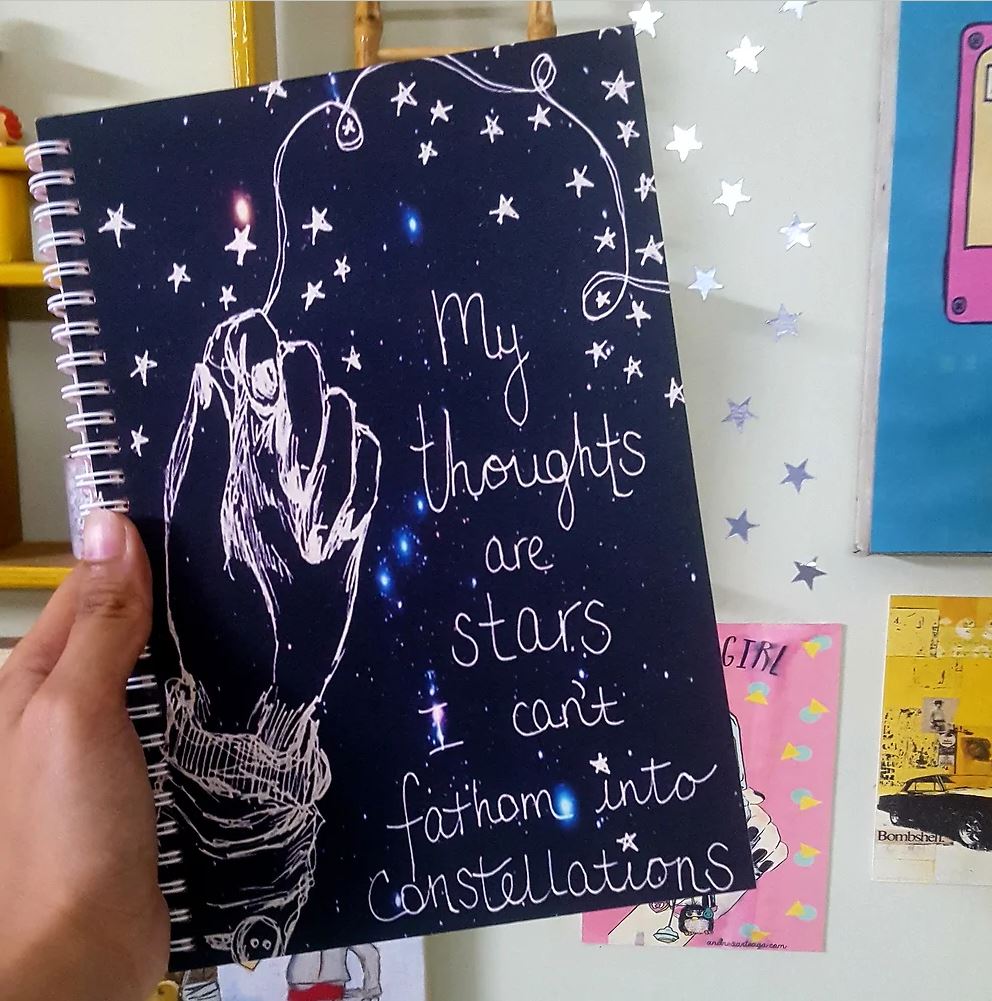 My
thoughts
are
stars
I can't
fathom into
constellations
GIRL
Bombshell
andreaarteaga.com